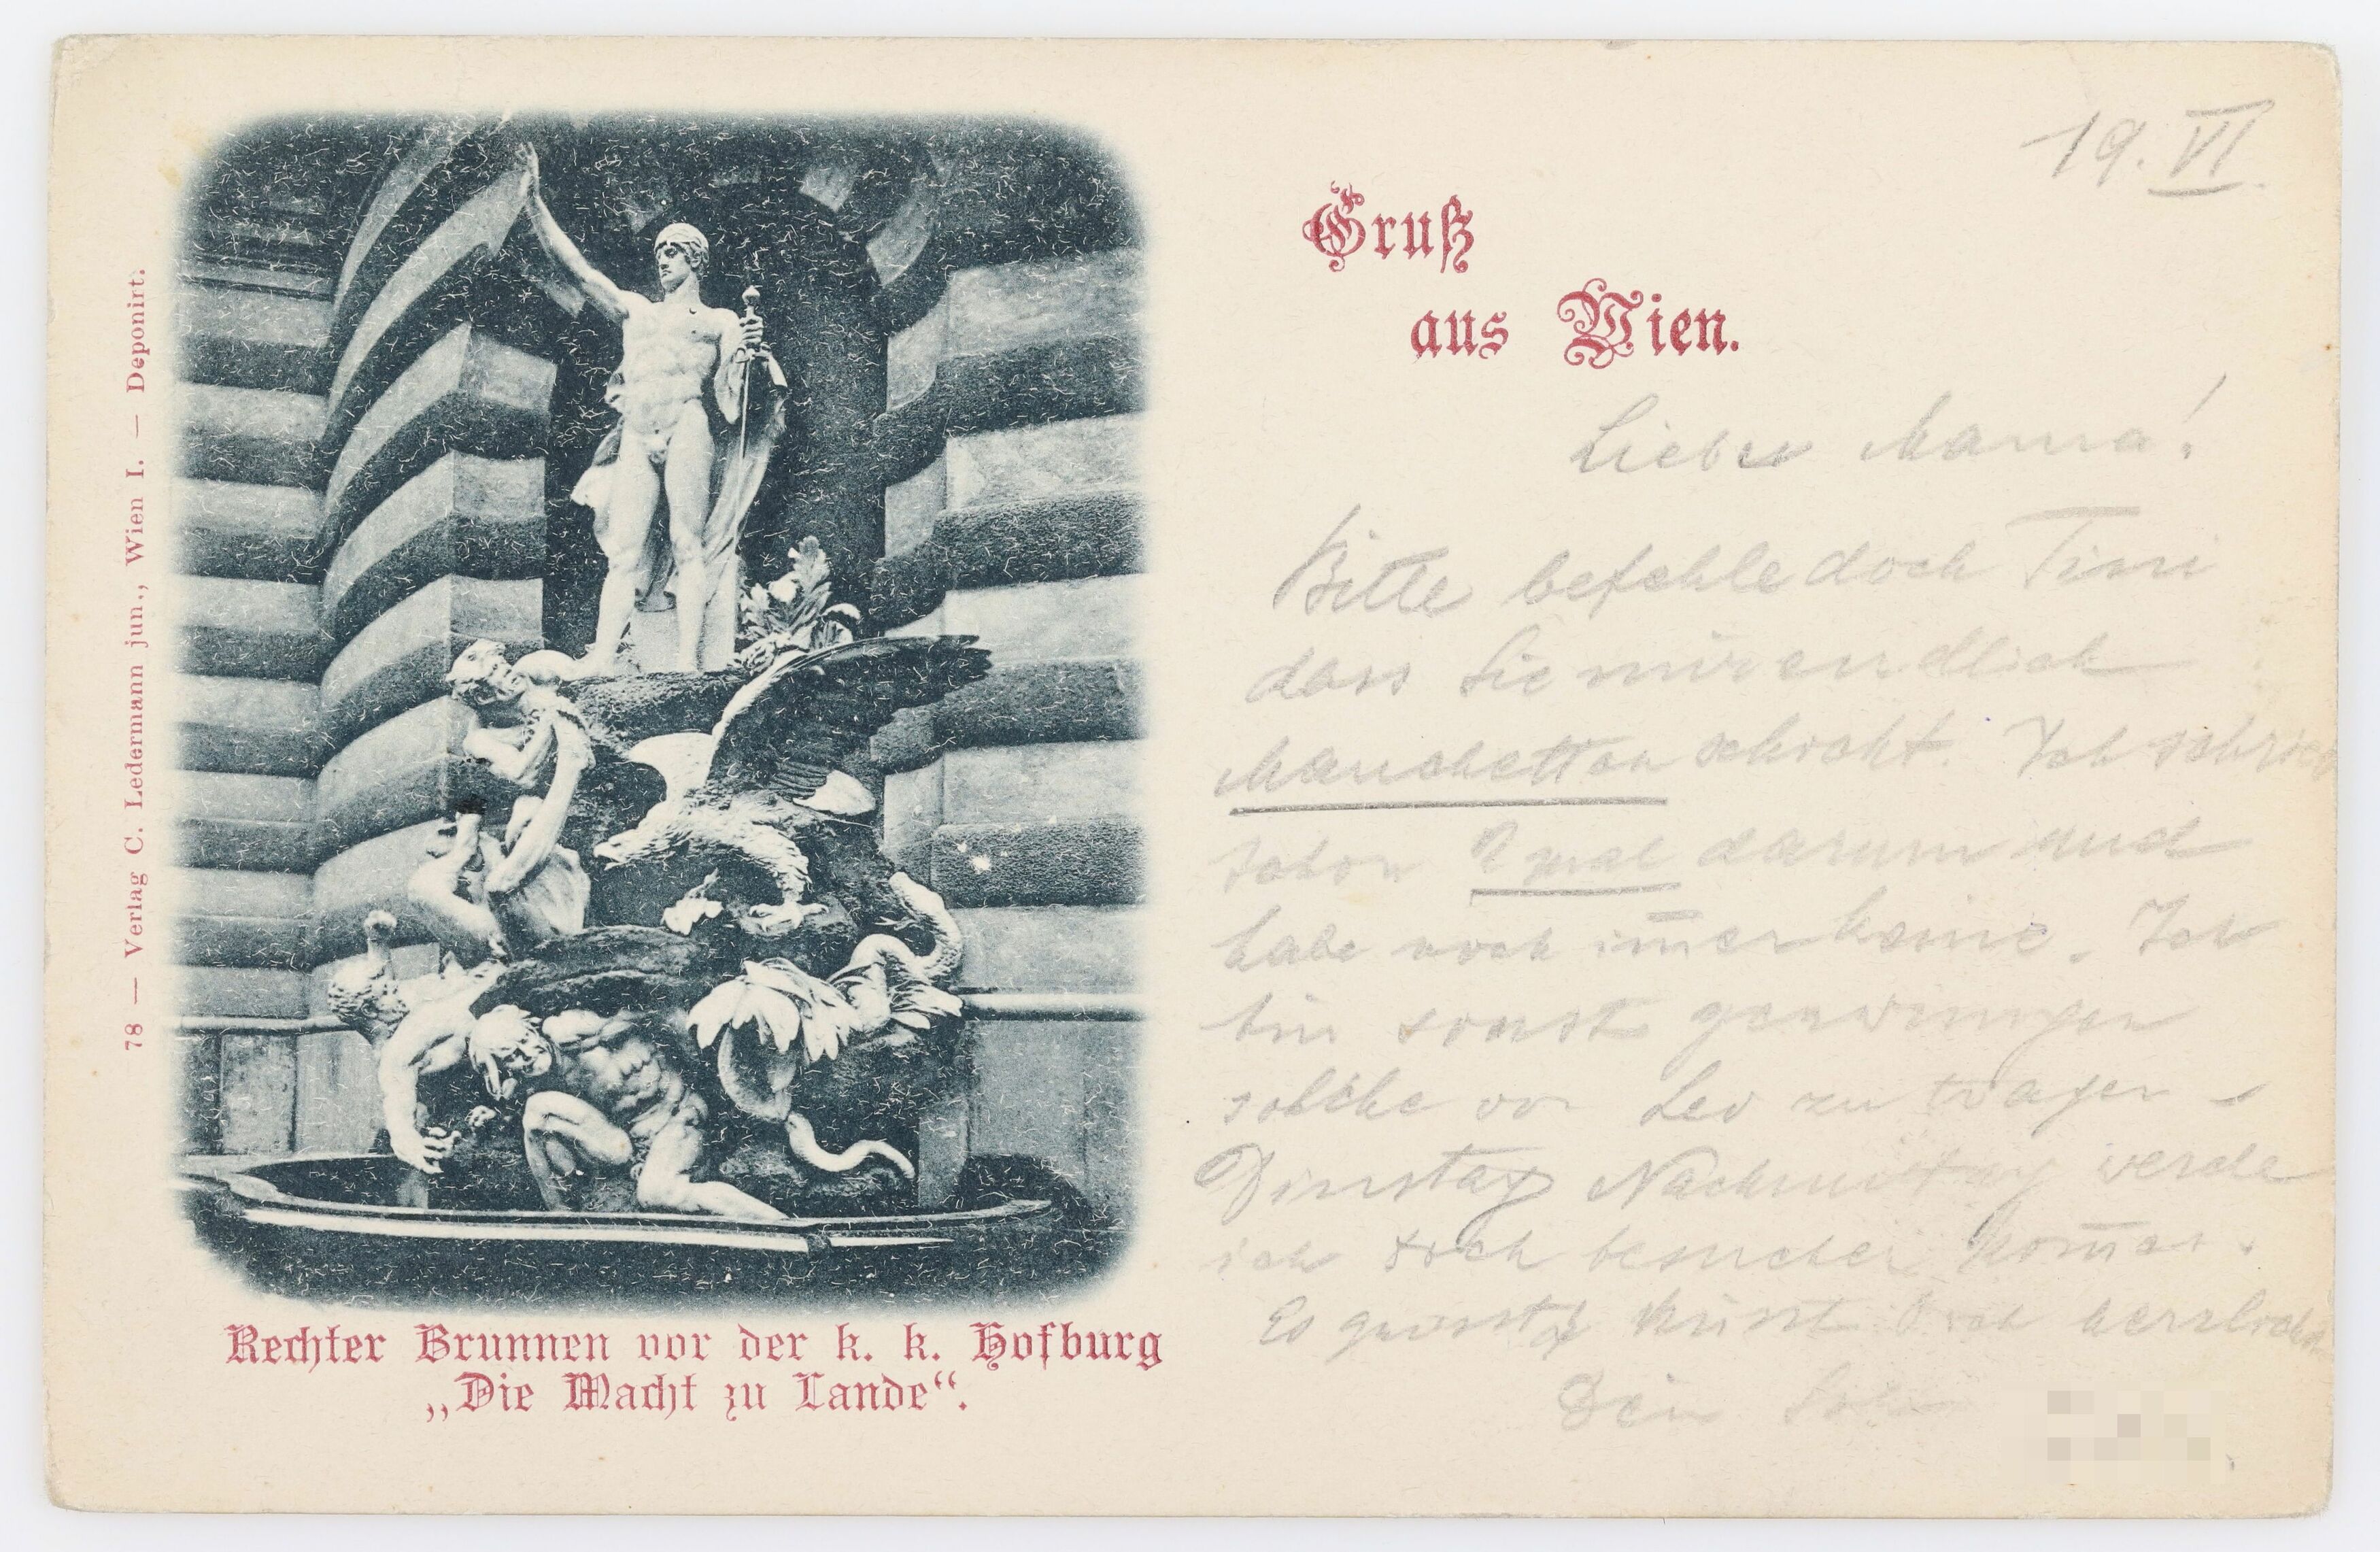 19. VI.
Gruß
aus Wien.
Liebe Mama!
Bitte befehle doch Tini
dass Sie mir endlich
Manchetten schickt. Ich schrieb
schon 2 mal darum und
habe noch im̄er keine. Ich
bin sonst gezwungen
solche von Leo zu tragen –
Dinstag Nachmittag werde
ich Dich besuchen kom̄en.
Es grüsst & küsst Dich herzlichst
Dein Sohn
78 — Verlag C. Ledermann jun., Wien I. — Deponirt.
Rechter Brunnen vor der k. k. Hofburg
„Die Macht zu Lande“.